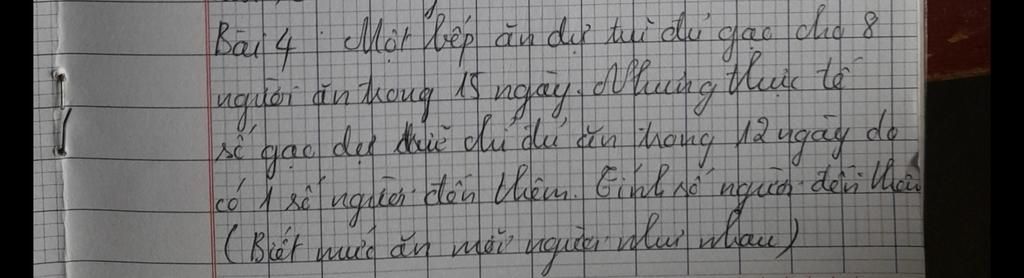 Bài 4 : Một bếp ăn dự trữ đủ gạo cho 8
người ăn trong 15 ngày. Nhưng thực tế
số gạo dự trữ chỉ đủ ăn trong 12 ngày do
có 1 số người đến thêm. Tính số người đến thêm
(Biết mức ăn mỗi người như nhau)